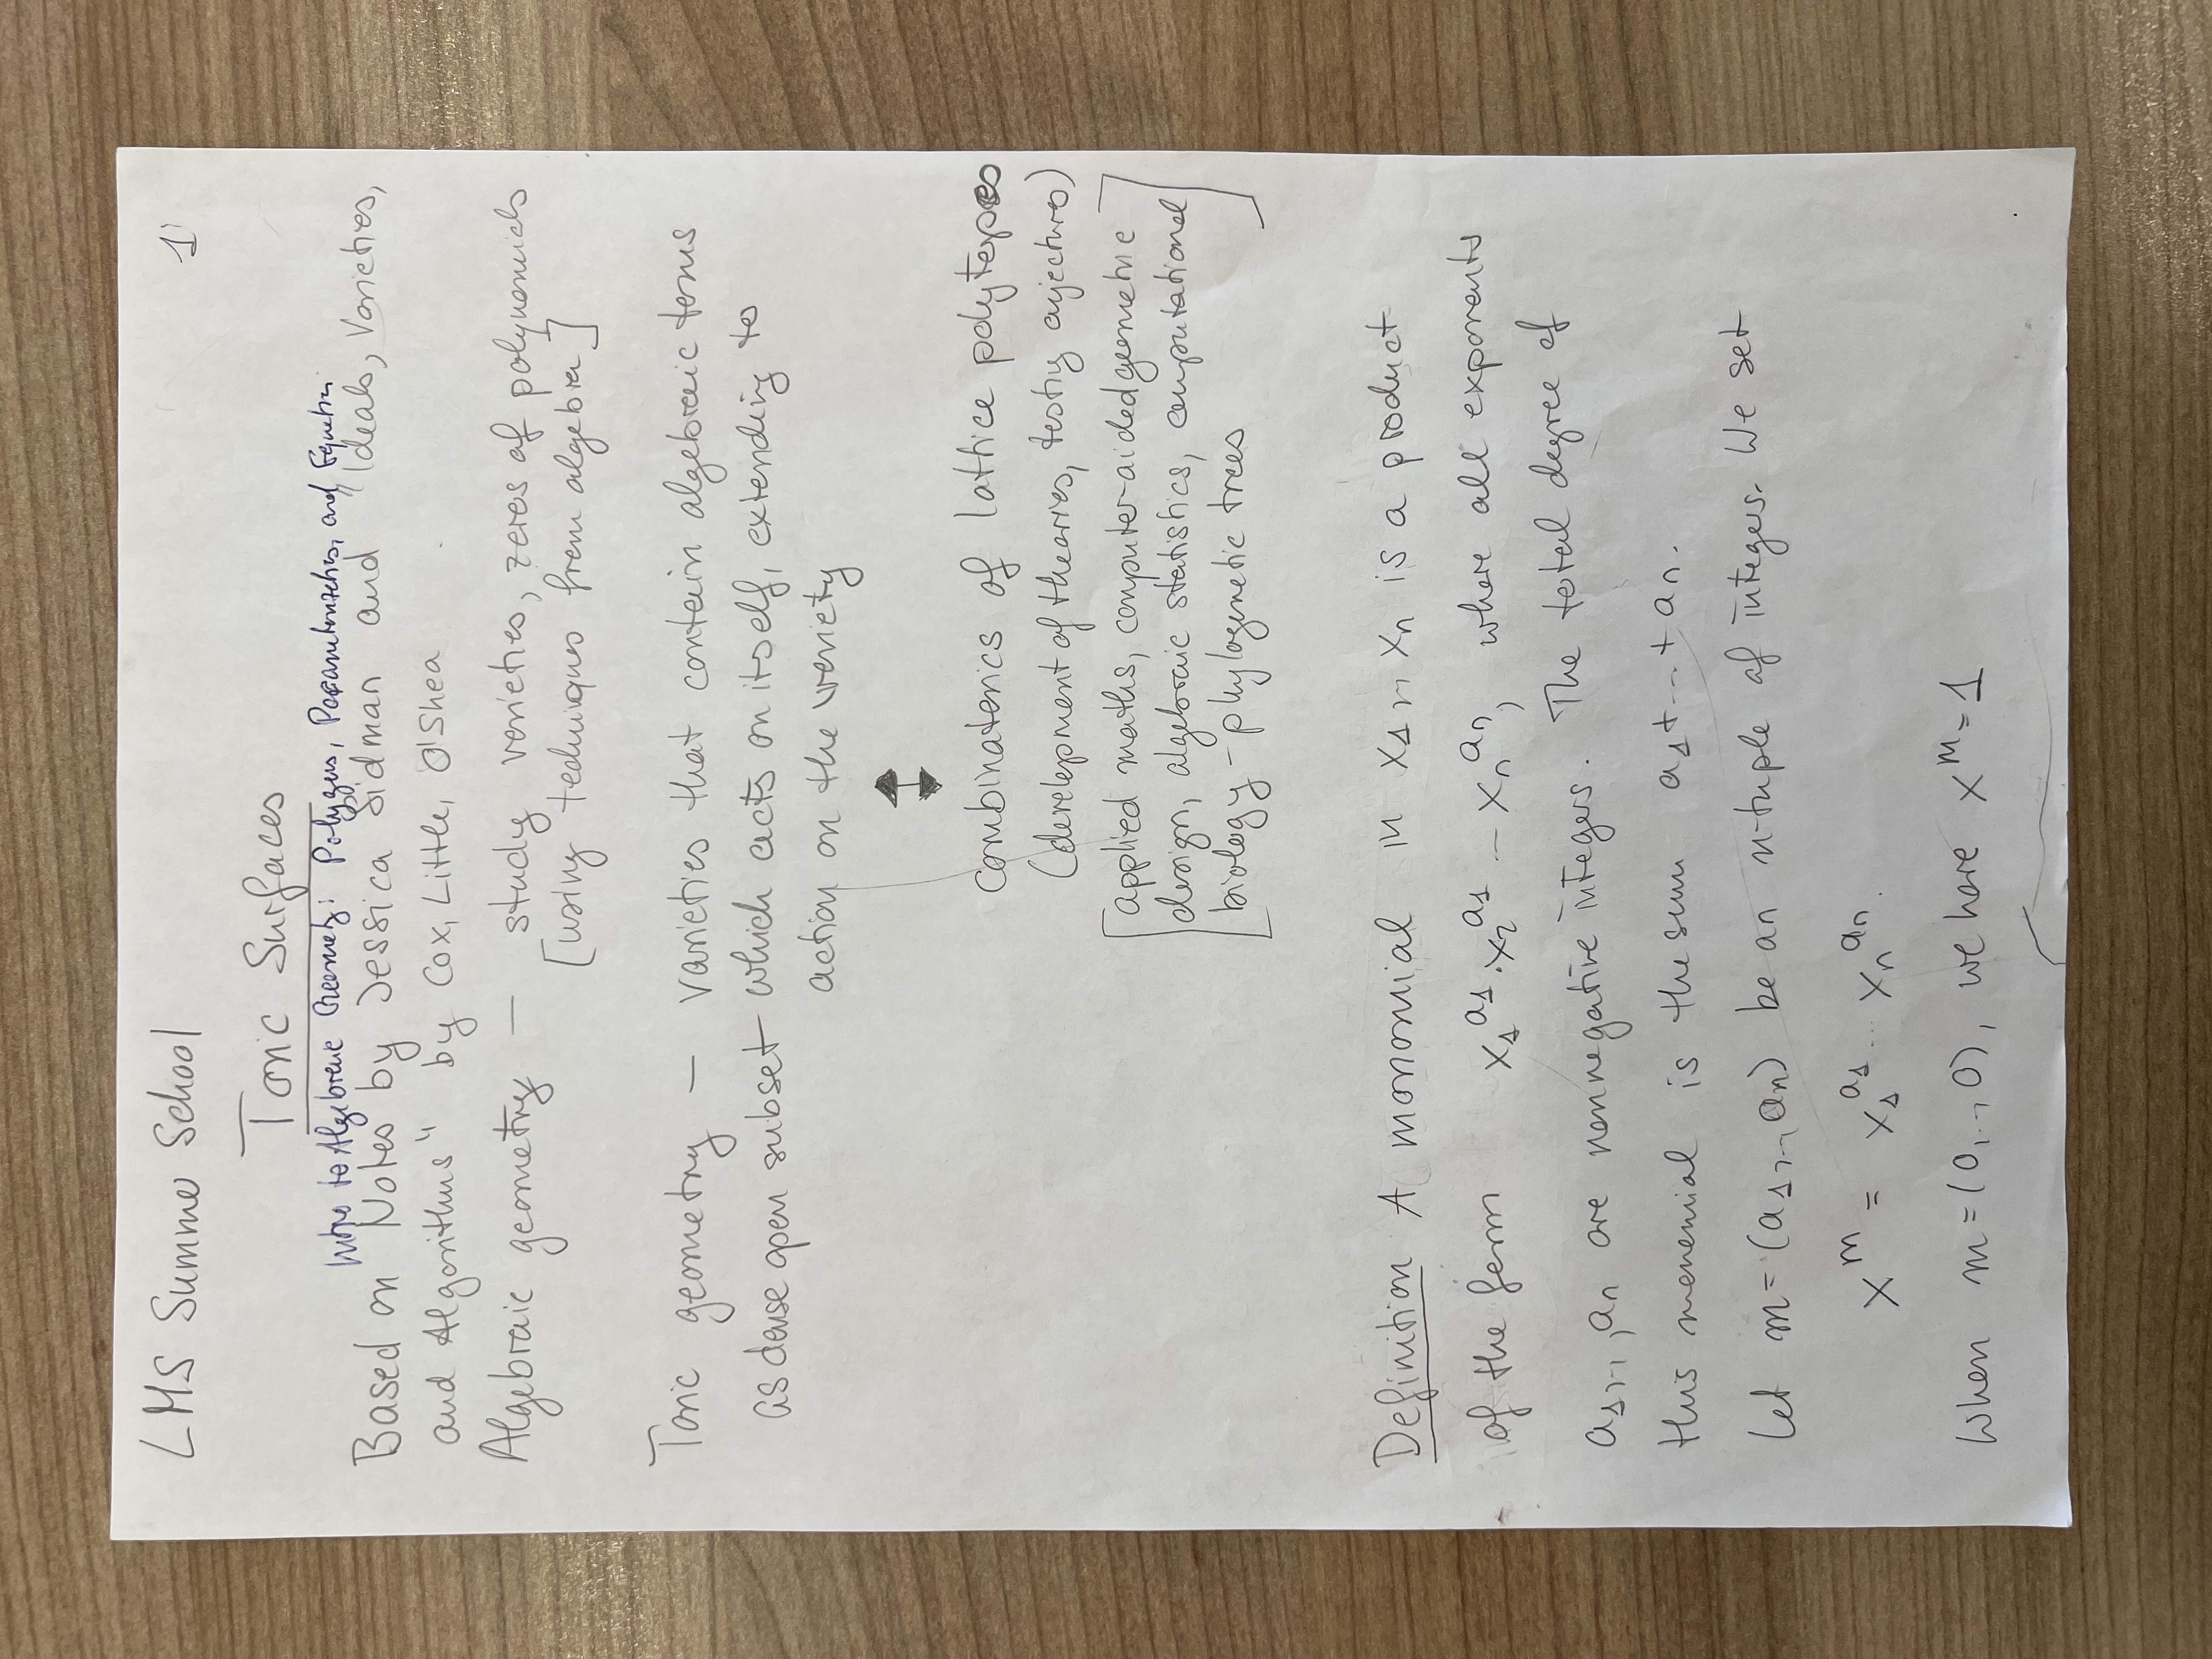 LMS Summer School 1
Toric Surfaces
Intro to Algebraic Geometry: Polygons, Parametrizations, and Equations
Based on Notes by Jessica Sidman and "Ideals, Varieties,
and Algorithms" by Cox, Little, O'Shea
Algebraic geometry — study varieties, zeros of polynomials
[using techniques from algebra]
Toric geometry — varieties that contain algebraic torus
as dense open subset which acts on itself, extending to
action on the variety
↕
combinatorics of lattice polytopes
(development of theories, testing conjectures)
[applied maths, computer-aided geometric
design, algebraic statistics, computational
biology - phylogenetic trees]
Definition A monomial in x₁,..,xₙ is a product
of the form x₁^a₁·x₂^a₁ ... xₙ^aₙ, where all exponents
a₁,..,aₙ are nonnegative integers. The total degree of
this monomial is the sum a₁+...+aₙ.
Let m=(a₁,..,aₙ) be an n-tuple of integers. We set
x^m = x₁^a₁ ... xₙ^aₙ.
When m=(0,..,0), we have x^m=1